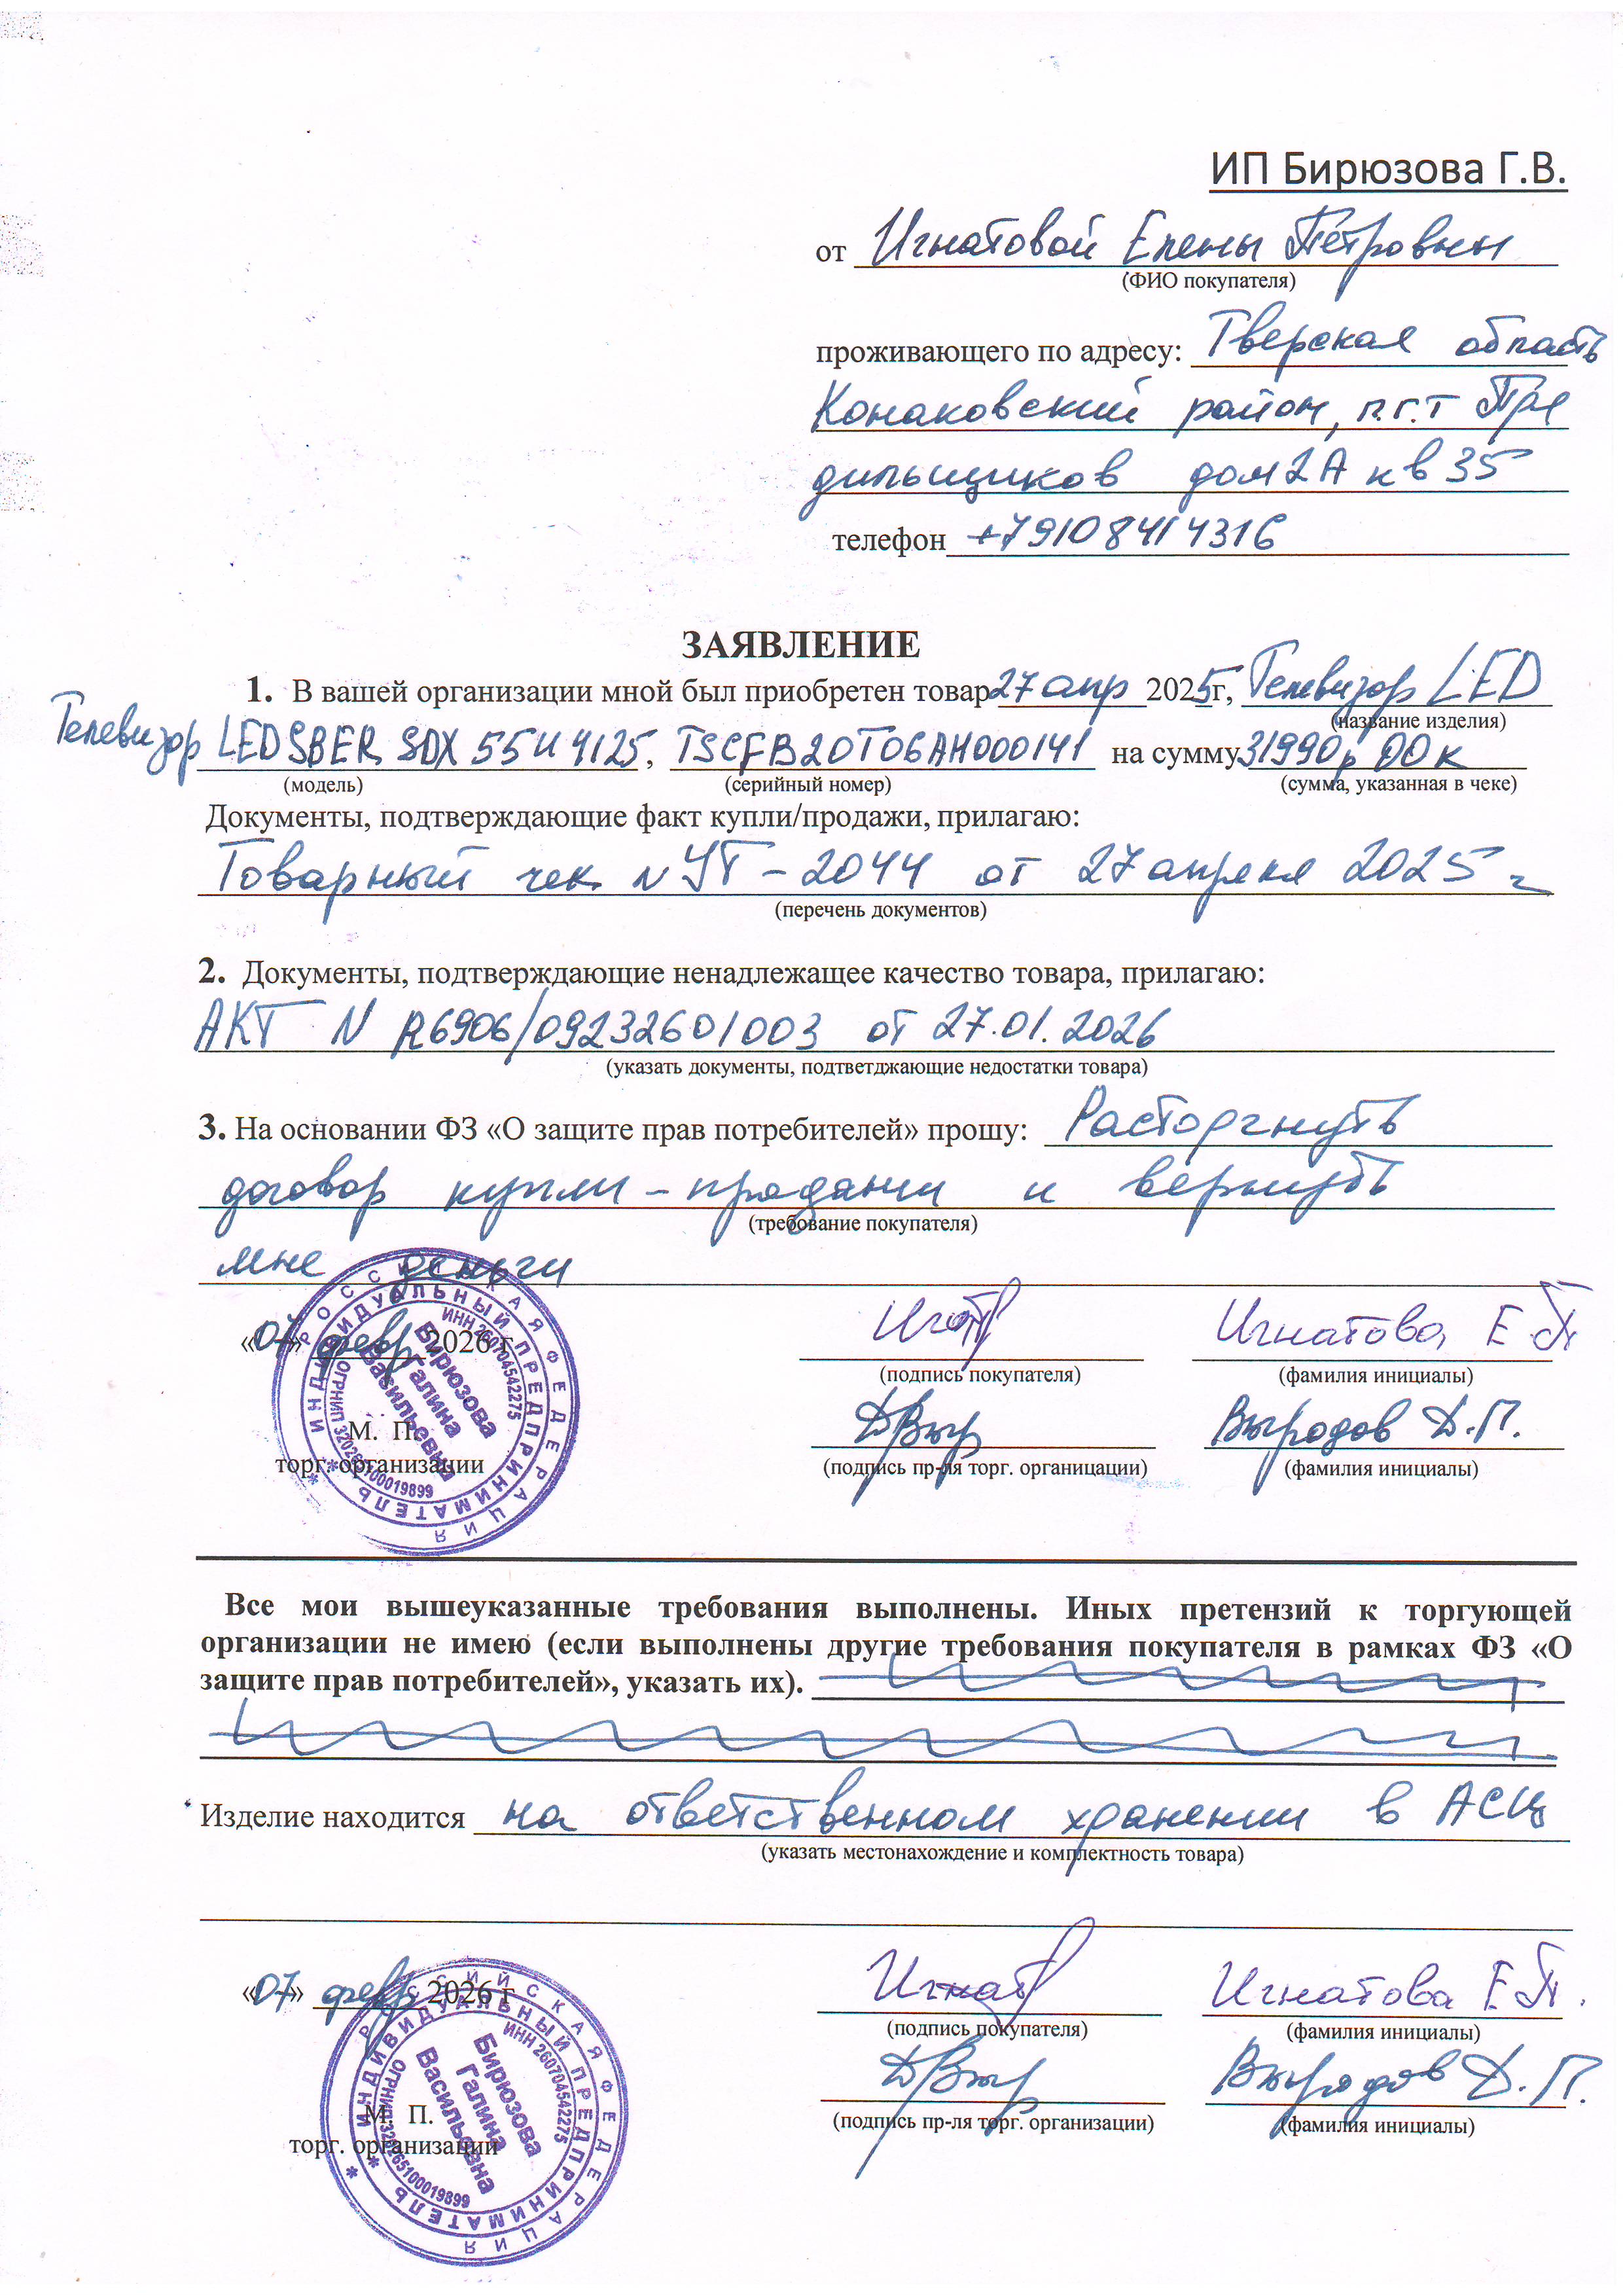 ИП Бирюзова Г.В.
от Игнатовой Елены Петровны
(ФИО покупателя)
проживающего по адресу: Тверская область
Конаковский район, п.г.т Пря
дильщиков дом 2А кв 35
телефон +79108414316
ЗАЯВЛЕНИЕ
1. В вашей организации мной был приобретен товар 27 апр 2025 г, Телевизор LED
(название изделия)
Телевизор LED SBER SDX 55U4125, TSCFB20T06AH000141 на сумму 31990р 00к
(модель) (серийный номер) (сумма, указанная в чеке)
Документы, подтверждающие факт купли/продажи, прилагаю:
Товарный чек N УТ-2044 от 27 апреля 2025 г
(перечень документов)
2. Документы, подтверждающие ненадлежащее качество товара, прилагаю:
АКТ N R6906/09232601003 от 27.01.2026
(указать документы, подтветджающие недостатки товара)
3. На основании ФЗ «О защите прав потребителей» прошу: Расторгнуть
договор купли-продажи и вернуть
(требование покупателя)
мне деньги
«07» февр 2026 г Игнат Игнатова Е П
(подпись покупателя) (фамилия инициалы)
ДВыр Выродов Д.П.
М. П.
торг. организации (подпись пр-ля торг. органицации) (фамилия инициалы)
РОССИЙСКАЯ ФЕДЕРАЦИЯ
ИНДИВИДУАЛЬНЫЙ ПРЕДПРИНИМАТЕЛЬ
ИНН 260704542275
Бирюзова
Галина
Васильевна
ОГРНИП 320265100019899
Все мои вышеуказанные требования выполнены. Иных претензий к торгующей
организации не имею (если выполнены другие требования покупателя в рамках ФЗ «О
защите прав потребителей», указать их).
Изделие находится на ответственном хранении в АСЦ
(указать местонахождение и комплектность товара)
«07» февр 2026 г Игнат Игнатова Е П.
(подпись покупателя) (фамилия инициалы)
ДВыр Выродов Д.П.
М. П.
торг. организации (подпись пр-ля торг. организации) (фамилия инициалы)
РОССИЙСКАЯ ФЕДЕРАЦИЯ
ИНДИВИДУАЛЬНЫЙ ПРЕДПРИНИМАТЕЛЬ
ИНН 260704542275
Бирюзова
Галина
Васильевна
ОГРНИП 320265100019899